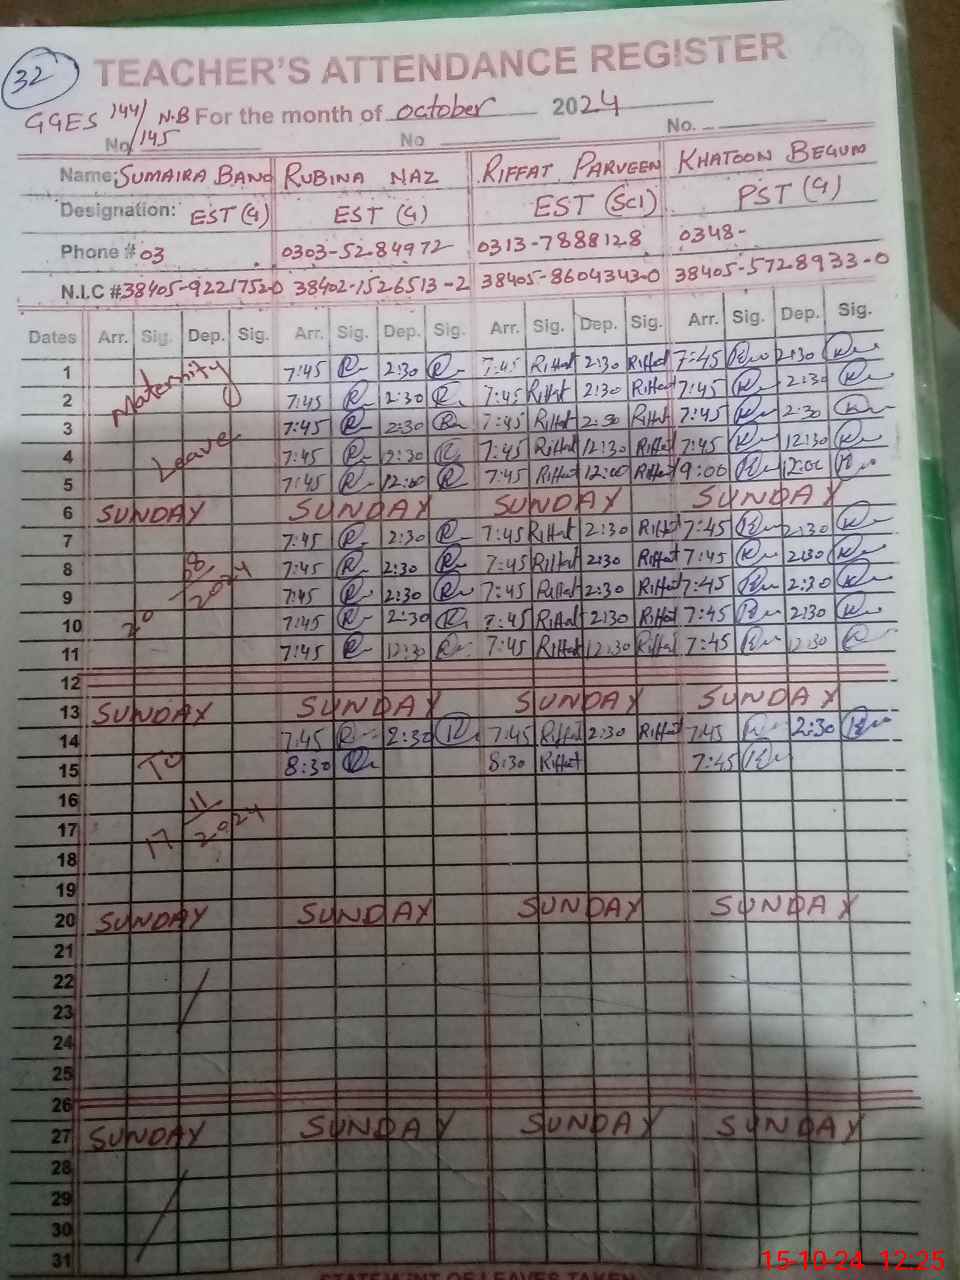 32
TEACHER'S ATTENDANCE REGISTER
GGES 144/145 N.B For the month of October 2024
No. No No.
Name: SUMAIRA BANO RUBINA NAZ RIFFAT PARVEEN KHATOON BEGUM
Designation: EST (G) EST (G) EST (Sci) PST (G)
Phone # 03 0303-5284972 0313-7888128 0348-
N.I.C # 38405-9221752-0 38402-1526513-2 38405-8604343-0 38405-5728933-0
Dates Arr. Sig. Dep. Sig. Arr. Sig. Dep. Sig. Arr. Sig. Dep. Sig. Arr. Sig. Dep. Sig.
1 Maternity 7:45 2:30 7:45 Riffat 2:30 Riffat 7:45 2:30
2 7:45 2:30 7:45 Riffat 2:30 Riffat 7:45 2:30
3 7:45 2:30 7:45 Riffat 2:30 Riffat 7:45 2:30
4 Leave 7:45 12:30 7:45 Riffat 12:30 Riffat 7:45 12:30
5 7:45 12:00 7:45 Riffat 12:00 Riffat 9:00 12:00
6 SUNDAY SUNDAY SUNDAY SUNDAY
7 7:45 2:30 7:45 Riffat 2:30 Riffat 7:45 2:30
8 7:45 2:30 7:45 Riffat 2:30 Riffat 7:45 2:30
9 2024 7:45 2:30 7:45 Riffat 2:30 Riffat 7:45 2:30
10 7:45 2:30 7:45 Riffat 2:30 Riffat 7:45 2:30
11 7:45 12:30 7:45 Riffat 12:30 Riffat 7:45 12:30
12
13 SUNDAY SUNDAY SUNDAY SUNDAY
14 7:45 2:30 7:45 Riffat 2:30 Riffat 7:45 2:30
15 To 8:30 8:30 Riffat 7:45
16 11
17 17 2024
18
19
20 SUNDAY SUNDAY SUNDAY SUNDAY
21
22
23
24
25
26
27 SUNDAY SUNDAY SUNDAY SUNDAY
28
29
30
31
15-10-24 12:25
STATEMENT OF LEAVES TAKEN